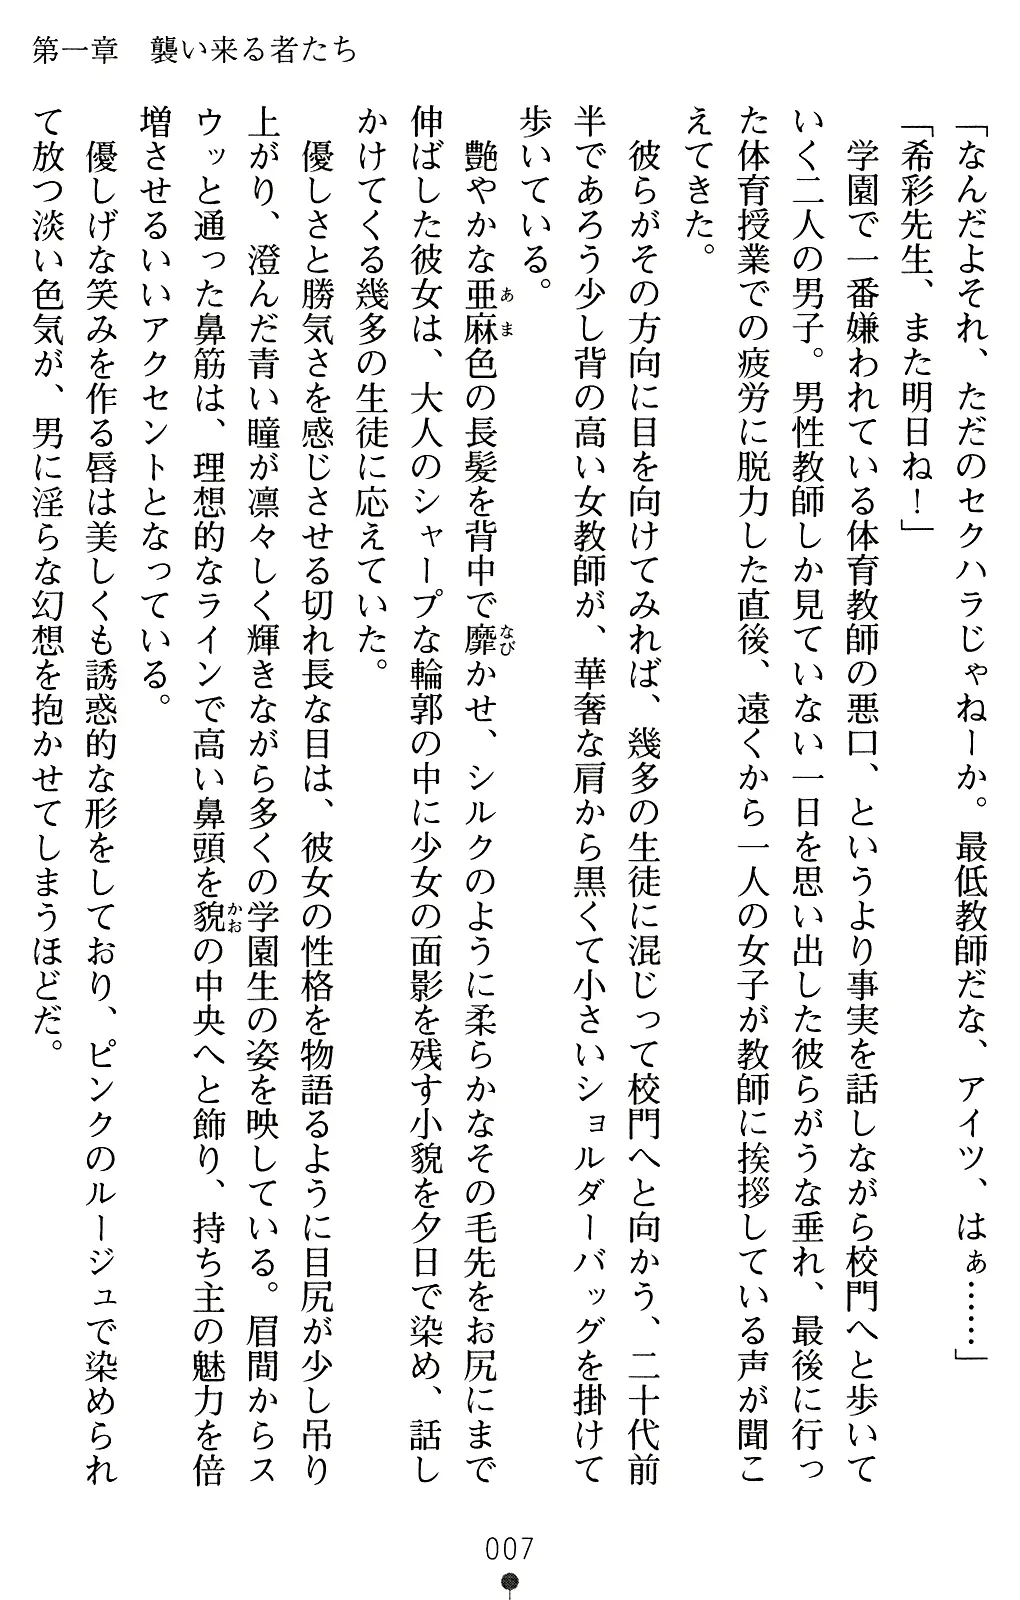 第一章　襲い来る者たち
「なんだよそれ、ただのセクハラじゃねーか。最低教師だな、アイツ、はぁ……」
「希彩先生、また明日ね！」
　学園で一番嫌われている体育教師の悪口、というより事実を話しながら校門へと歩いて
いく二人の男子。男性教師しか見ていない一日を思い出した彼らがうな垂れ、最後に行っ
た体育授業での疲労に脱力した直後、遠くから一人の女子が教師に挨拶している声が聞こ
えてきた。
　彼らがその方向に目を向けてみれば、幾多の生徒に混じって校門へと向かう、二十代前
半であろう少し背の高い女教師が、華奢な肩から黒くて小さいショルダーバッグを掛けて
歩いている。
　艶やかな亜麻色の長髪を背中で靡かせ、シルクのように柔らかなその毛先をお尻にまで
伸ばした彼女は、大人のシャープな輪郭の中に少女の面影を残す小貌を夕日で染め、話し
かけてくる幾多の生徒に応えていた。
　優しさと勝気さを感じさせる切れ長な目は、彼女の性格を物語るように目尻が少し吊り
上がり、澄んだ青い瞳が凛々しく輝きながら多くの学園生の姿を映している。眉間からス
ウッと通った鼻筋は、理想的なラインで高い鼻頭を貌の中央へと飾り、持ち主の魅力を倍
増させるいいアクセントとなっている。
　優しげな笑みを作る唇は美しくも誘惑的な形をしており、ピンクのルージュで染められ
て放つ淡い色気が、男に淫らな幻想を抱かせてしまうほどだ。
あま
なび
かお
007